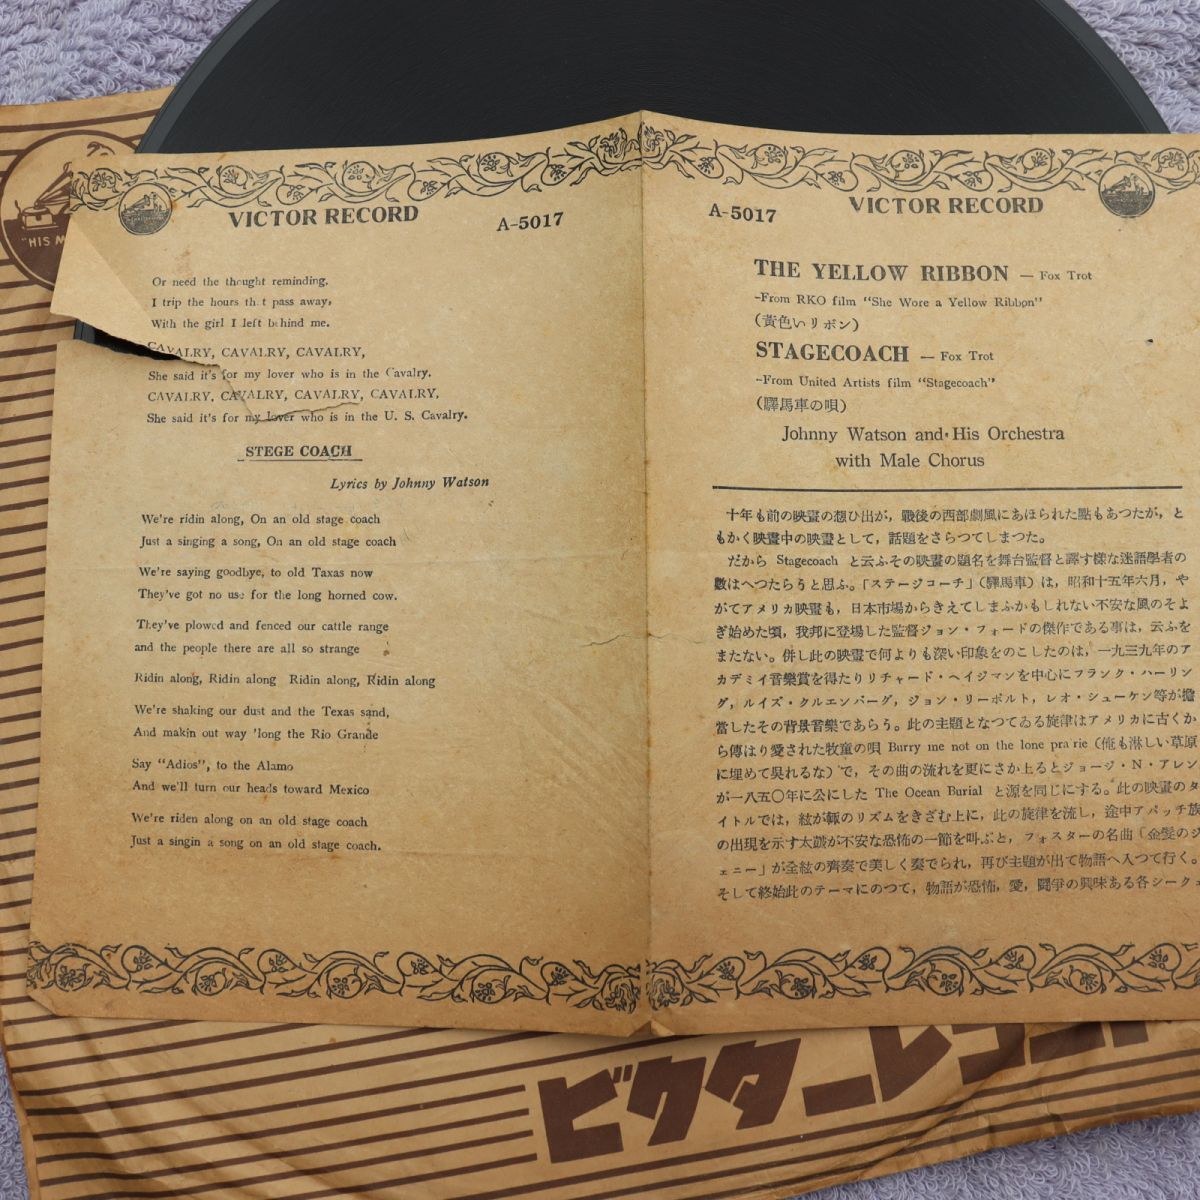 VICTOR RECORD
A-5017
"HIS M
Or need the thought reminding,
I trip the hours th.t pass away,
With the girl I left behind me.
CAVALRY, CAVALRY, CAVALRY,
She said it's for my lover who is in the Cavalry.
CAVALRY, CAVALRY, CAVALRY, CAVALRY,
She said it's for my lover who is in the U. S. Cavalry.
STEGE COACH
Lyrics by Johnny Watson
We're ridin along, On an old stage coach
Just a singing a song, On an old stage coach
We're saying goodbye, to old Taxas now
They've got no use for the long horned cow.
They've plowed and fenced our cattle range
and the people there are all so strange
Ridin along, Ridin along Ridin along, Ridin along
We're shaking our dust and the Texas sand,
And makin out way 'long the Rio Grande
Say "Adios", to the Alamo
And we'll turn our heads toward Mexico
We're riden along on an old stage coach
Just a singin a song on an old stage coach.
A-5017
VICTOR RECORD
THE YELLOW RIBBON — Fox Trot
-From RKO film "She Wore a Yellow Ribbon"
(黃色いリボン)
STAGECOACH — Fox Trot
-From United Artists film "Stagecoach"
(驛馬車の唄)
Johnny Watson and His Orchestra
with Male Chorus
十年も前の映畫の想ひ出が，戰後の西部劇風にあほられた點もあつたが，と
もかく映畫中の映畫として，話題をさらつてしまつた。
だから Stagecoach と云ふその映畫の題名を舞台監督と譯す樣な迷語學者の
數はへつたらうと思ふ。「ステージコーチ」(驛馬車) は，昭和十五年六月，や
がてアメリカ映畫も，日本市場からきえてしまふかもしれない不安な風のそよ
ぎ始めた頃，我邦に登場した監督ジョン・フォードの傑作である事は，云ふを
またない。併し此の映畫で何よりも深い印象をのこしたのは，一九三九年のア
カデミイ音樂賞を得たりリチャード・ヘイジマンを中心にフランク・ハーリン
グ，ルイズ・クルエンバーグ，ジョン・リーポルト，レオ・シューケン等が擔
當したその背景音樂であらう。此の主題となつてゐる旋律はアメリカに古くか
ら傳はり愛された牧童の唄 Burry me not on the lone pra rie (俺も淋しい草原
に埋めて吳れるな) で，その曲の流れを更にさか上るとジョージ・N・アレン
が一八五〇年に公にした The Ocean Burial と源を同じにする。此の映畫のタ
イトルでは，絃が轍のリズムをきざむ上に，此の旋律を流し，途中アパッチ族
の出現を示す太鼓が不安な恐怖の一節を叫ぶと，フォスターの名曲「金髮のジ
ェニー」が全絃の齊奏で美しく奏でられ，再び主題が出て物語へ入つて行く。
そして終始此のテーマにのつて，物語が恐怖，愛，鬪爭の興味ある各シークェ
ビクターレコー